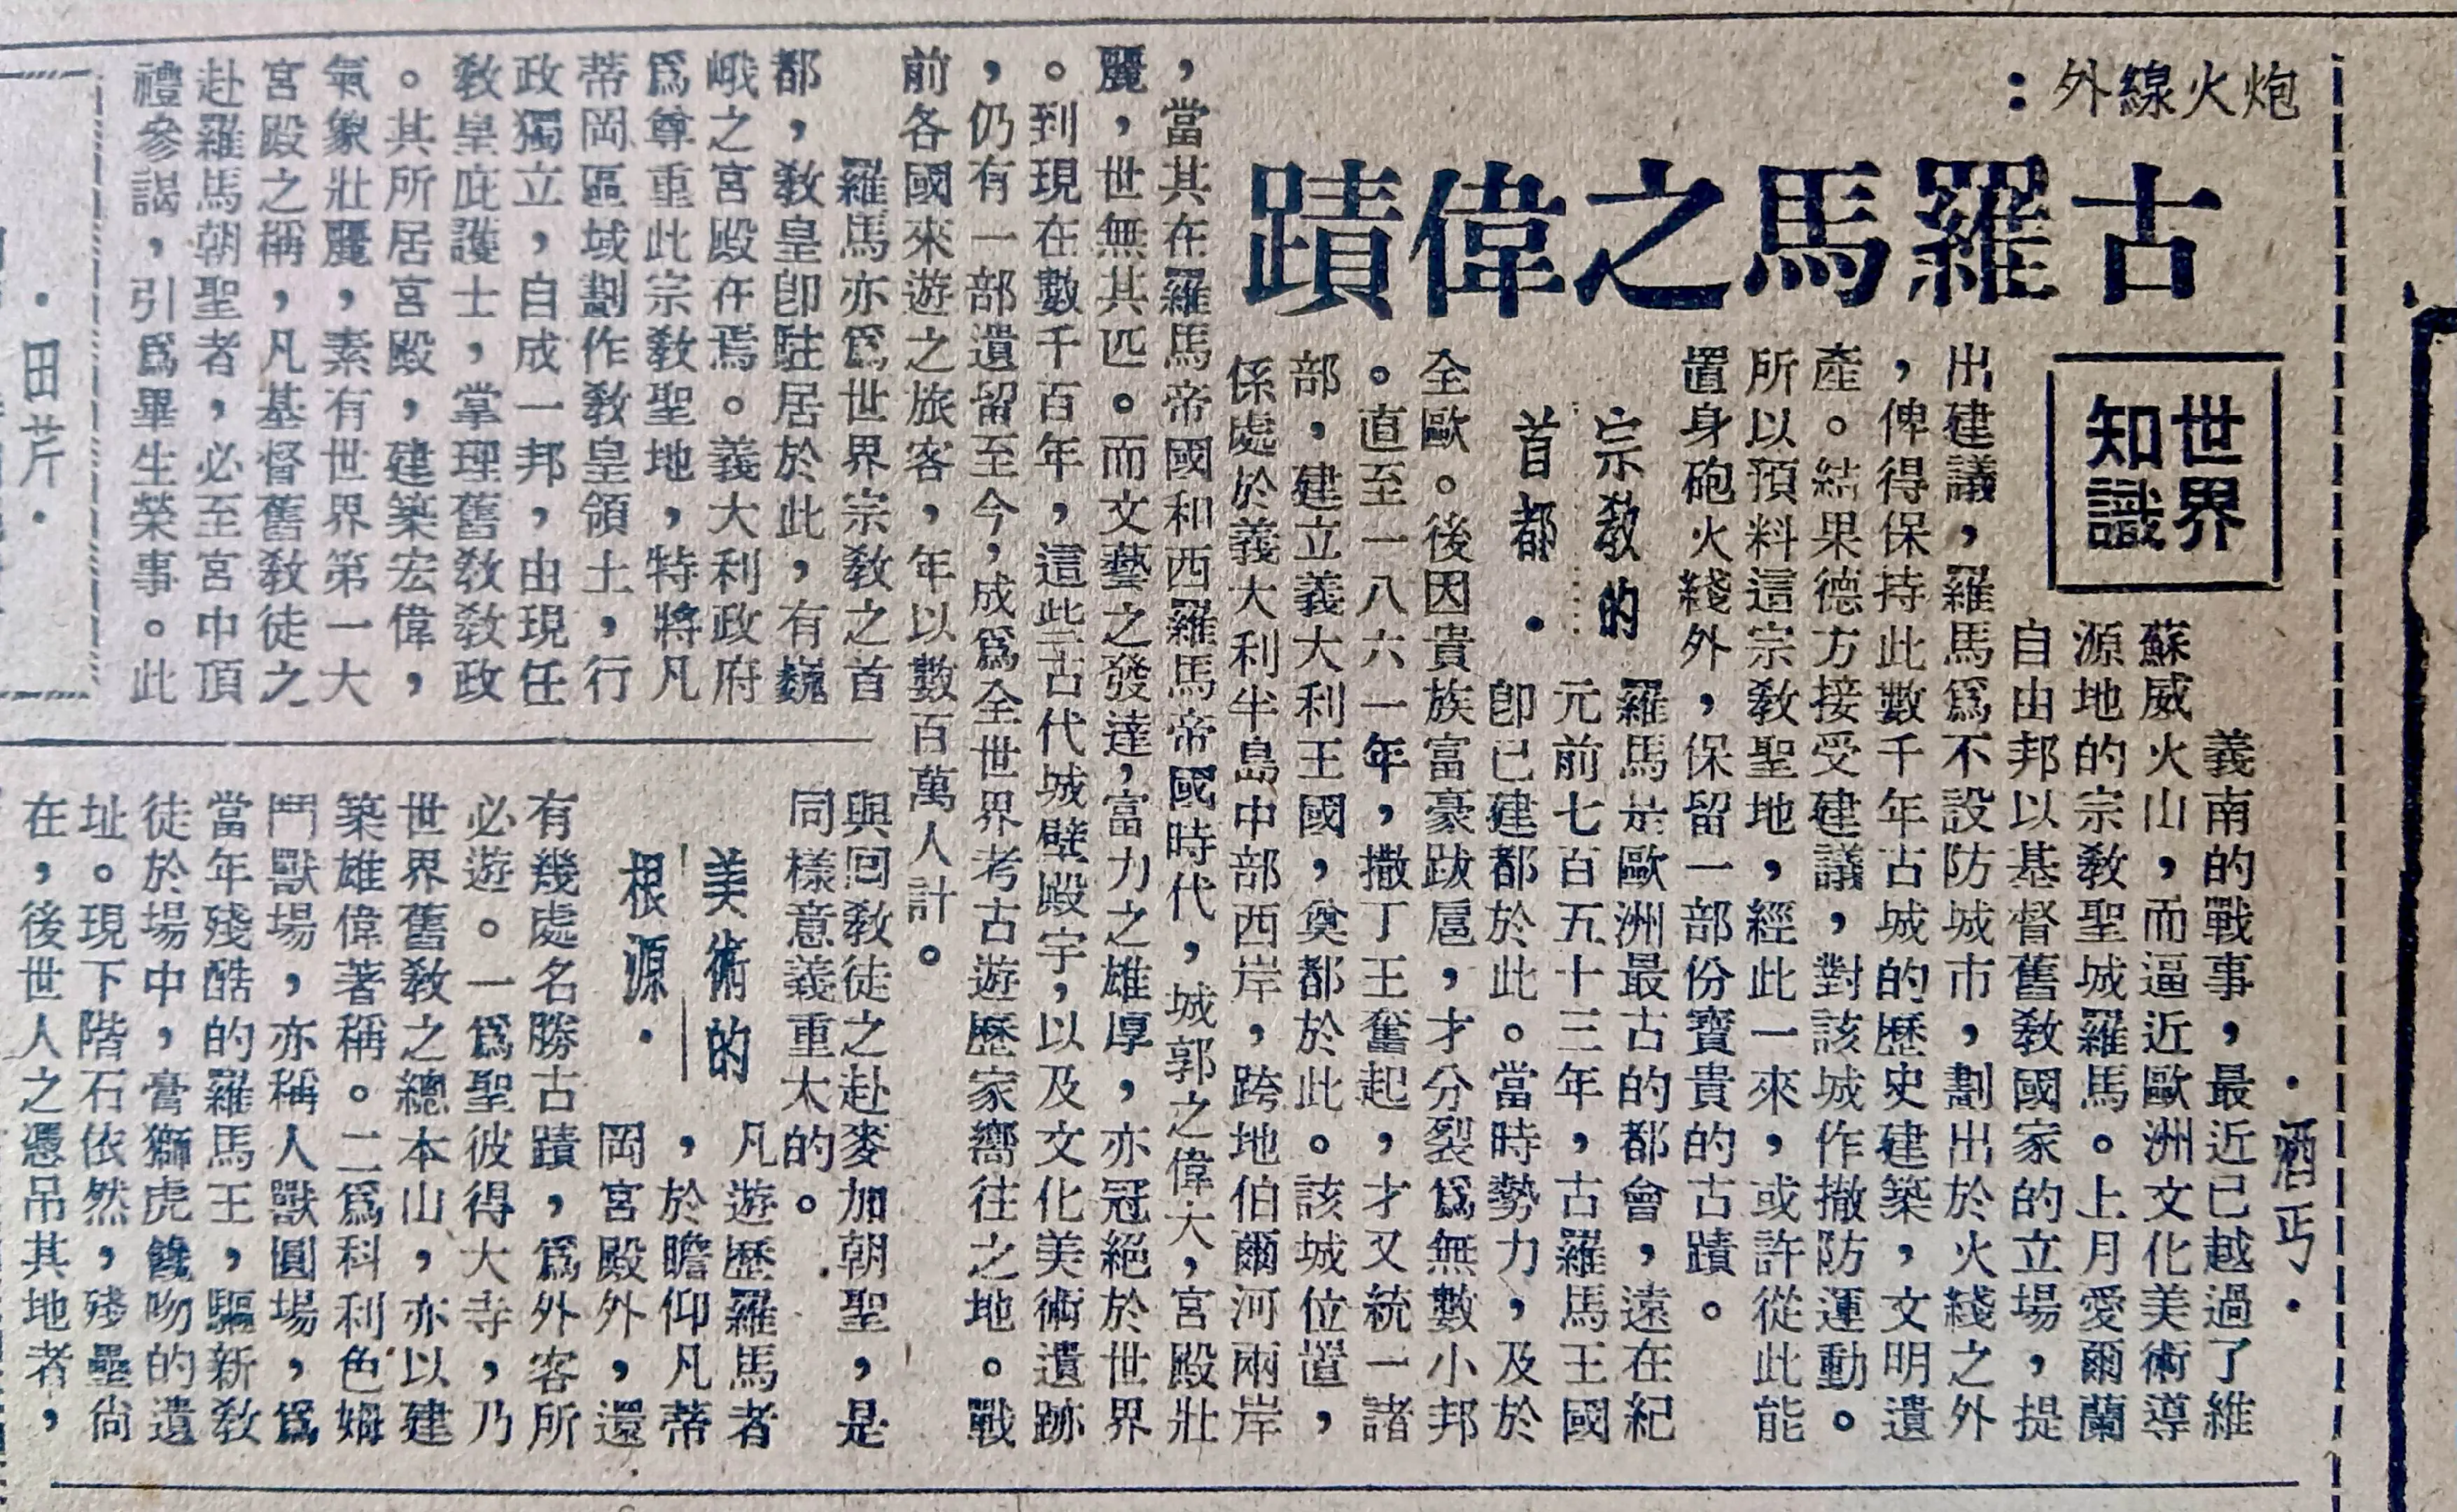 炮火線外：
古羅馬之偉蹟
世界
知識
·酒丐·
義南的戰事，最近已越過了維
蘇威火山，而逼近歐洲文化美術導
源地的宗教聖城羅馬。上月愛爾蘭
自由邦以基督舊教國家的立場，提
出建議，羅馬爲不設防城市，劃出於火綫之外
，俾得保持此數千年古城的歷史建築，文明遺
產。結果德方接受建議，對該城作撤防運動。
所以預料這宗教聖地，經此一來，或許從此能
置身砲火綫外，保留一部份寶貴的古蹟。
宗教的
首都·
羅馬於歐洲最古的都會，遠在紀
元前七百五十三年，古羅馬王國
卽已建都於此。當時勢力，及於
全歐。後因貴族富豪跋扈，才分裂爲無數小邦
。直至一八六一年，撒丁王奮起，才又統一諸
部，建立義大利王國，奠都於此。該城位置，
係處於義大利半島中部西岸，跨地伯爾河兩岸
，當其在羅馬帝國和西羅馬帝國時代，城郭之偉大，宮殿壯
麗，世無其匹。而文藝之發達，富力之雄厚，亦冠絕於世界
。到現在數千百年，這些古代城壁殿宇，以及文化美術遺跡
，仍有一部遺留至今，成爲全世界考古遊歷家嚮往之地。戰
前各國來遊之旅客，年以數百萬人計。
羅馬亦爲世界宗教之首
都，教皇卽駐居於此，有巍
峨之宮殿在焉。義大利政府
爲尊重此宗教聖地，特將凡
蒂岡區域劃作教皇領土，行
政獨立，自成一邦，由現任
教皇庇護士，掌理舊教教政
。其所居宮殿，建築宏偉，
氣象壯麗，素有世界第一大
宮殿之稱，凡基督舊教徒之
赴羅馬朝聖者，必至宮中頂
禮參謁，引爲畢生榮事。此
與回教徒之赴麥加朝聖，是
同樣意義重大的。
美術的
根源·
凡遊歷羅馬者
，於瞻仰凡蒂
岡宮殿外，還
有幾處名勝古蹟，爲外客所
必遊。一爲聖彼得大寺，乃
世界舊教之總本山，亦以建
築雄偉著稱。二爲科利色姆
鬥獸場，亦稱人獸圓場，爲
當年殘酷的羅馬王，驅新教
徒於場中，膏獅虎饞吻的遺
址。現下階石依然，殘壘尙
在，後世人之憑吊其地者，
·田芹·